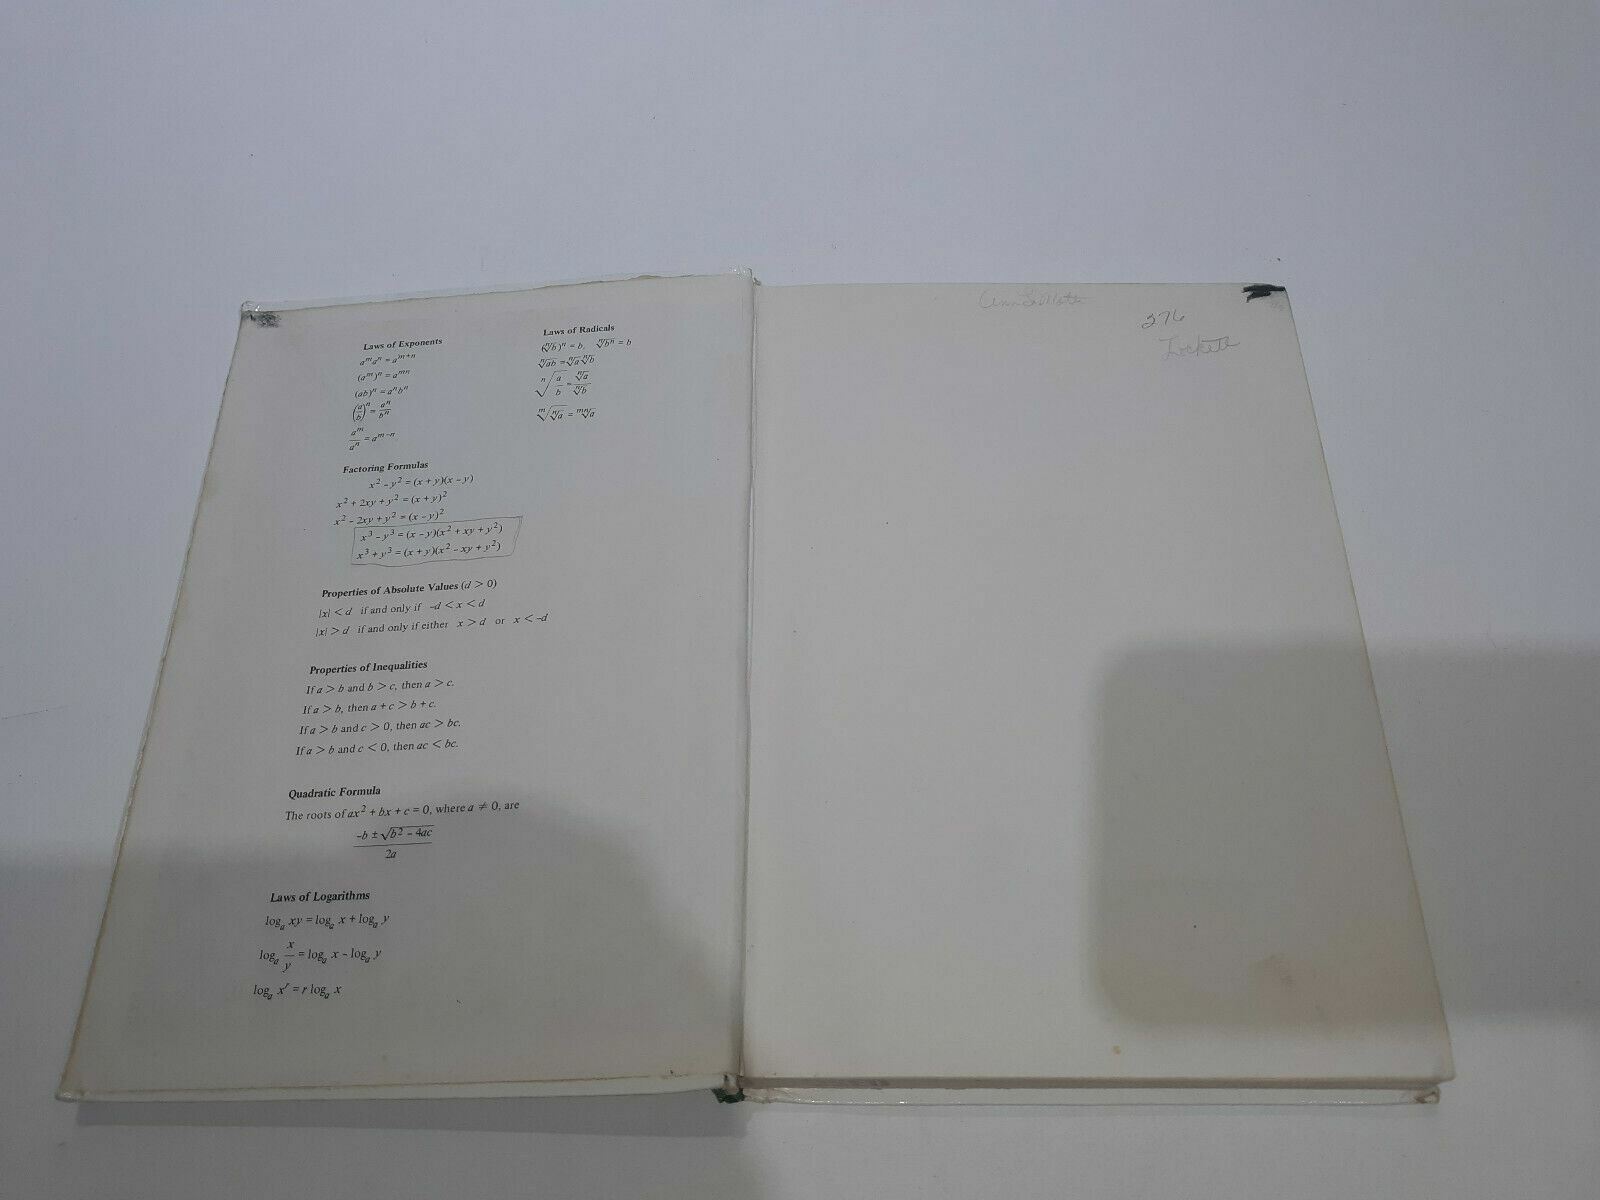 Laws of Exponents
aᵐaⁿ = aᵐ⁺ⁿ
(aᵐ)ⁿ = aᵐⁿ
(ab)ⁿ = aⁿbⁿ
(a/b)ⁿ = aⁿ/bⁿ
aᵐ/aⁿ = aᵐ⁻ⁿ
Laws of Radicals
(ⁿ√b)ⁿ = b, ⁿ√bⁿ = b
ⁿ√ab = ⁿ√a ⁿ√b
ⁿ√(a/b) = ⁿ√a/ⁿ√b
ᵐ√(ⁿ√a) = ᵐⁿ√a
Factoring Formulas
x² - y² = (x + y)(x - y)
x² + 2xy + y² = (x + y)²
x² - 2xy + y² = (x - y)²
x³ - y³ = (x - y)(x² + xy + y²)
x³ + y³ = (x + y)(x² - xy + y²)
Properties of Absolute Values (d > 0)
|x| < d if and only if -d < x < d
|x| > d if and only if either x > d or x < -d
Properties of Inequalities
If a > b and b > c, then a > c.
If a > b, then a + c > b + c.
If a > b and c > 0, then ac > bc.
If a > b and c < 0, then ac < bc.
Quadratic Formula
The roots of ax² + bx + c = 0, where a ≠ 0, are
-b ± √b² - 4ac
2a
Laws of Logarithms
logₐ xy = logₐ x + logₐ y
logₐ x/y = logₐ x - logₐ y
logₐ xʳ = r logₐ x
376